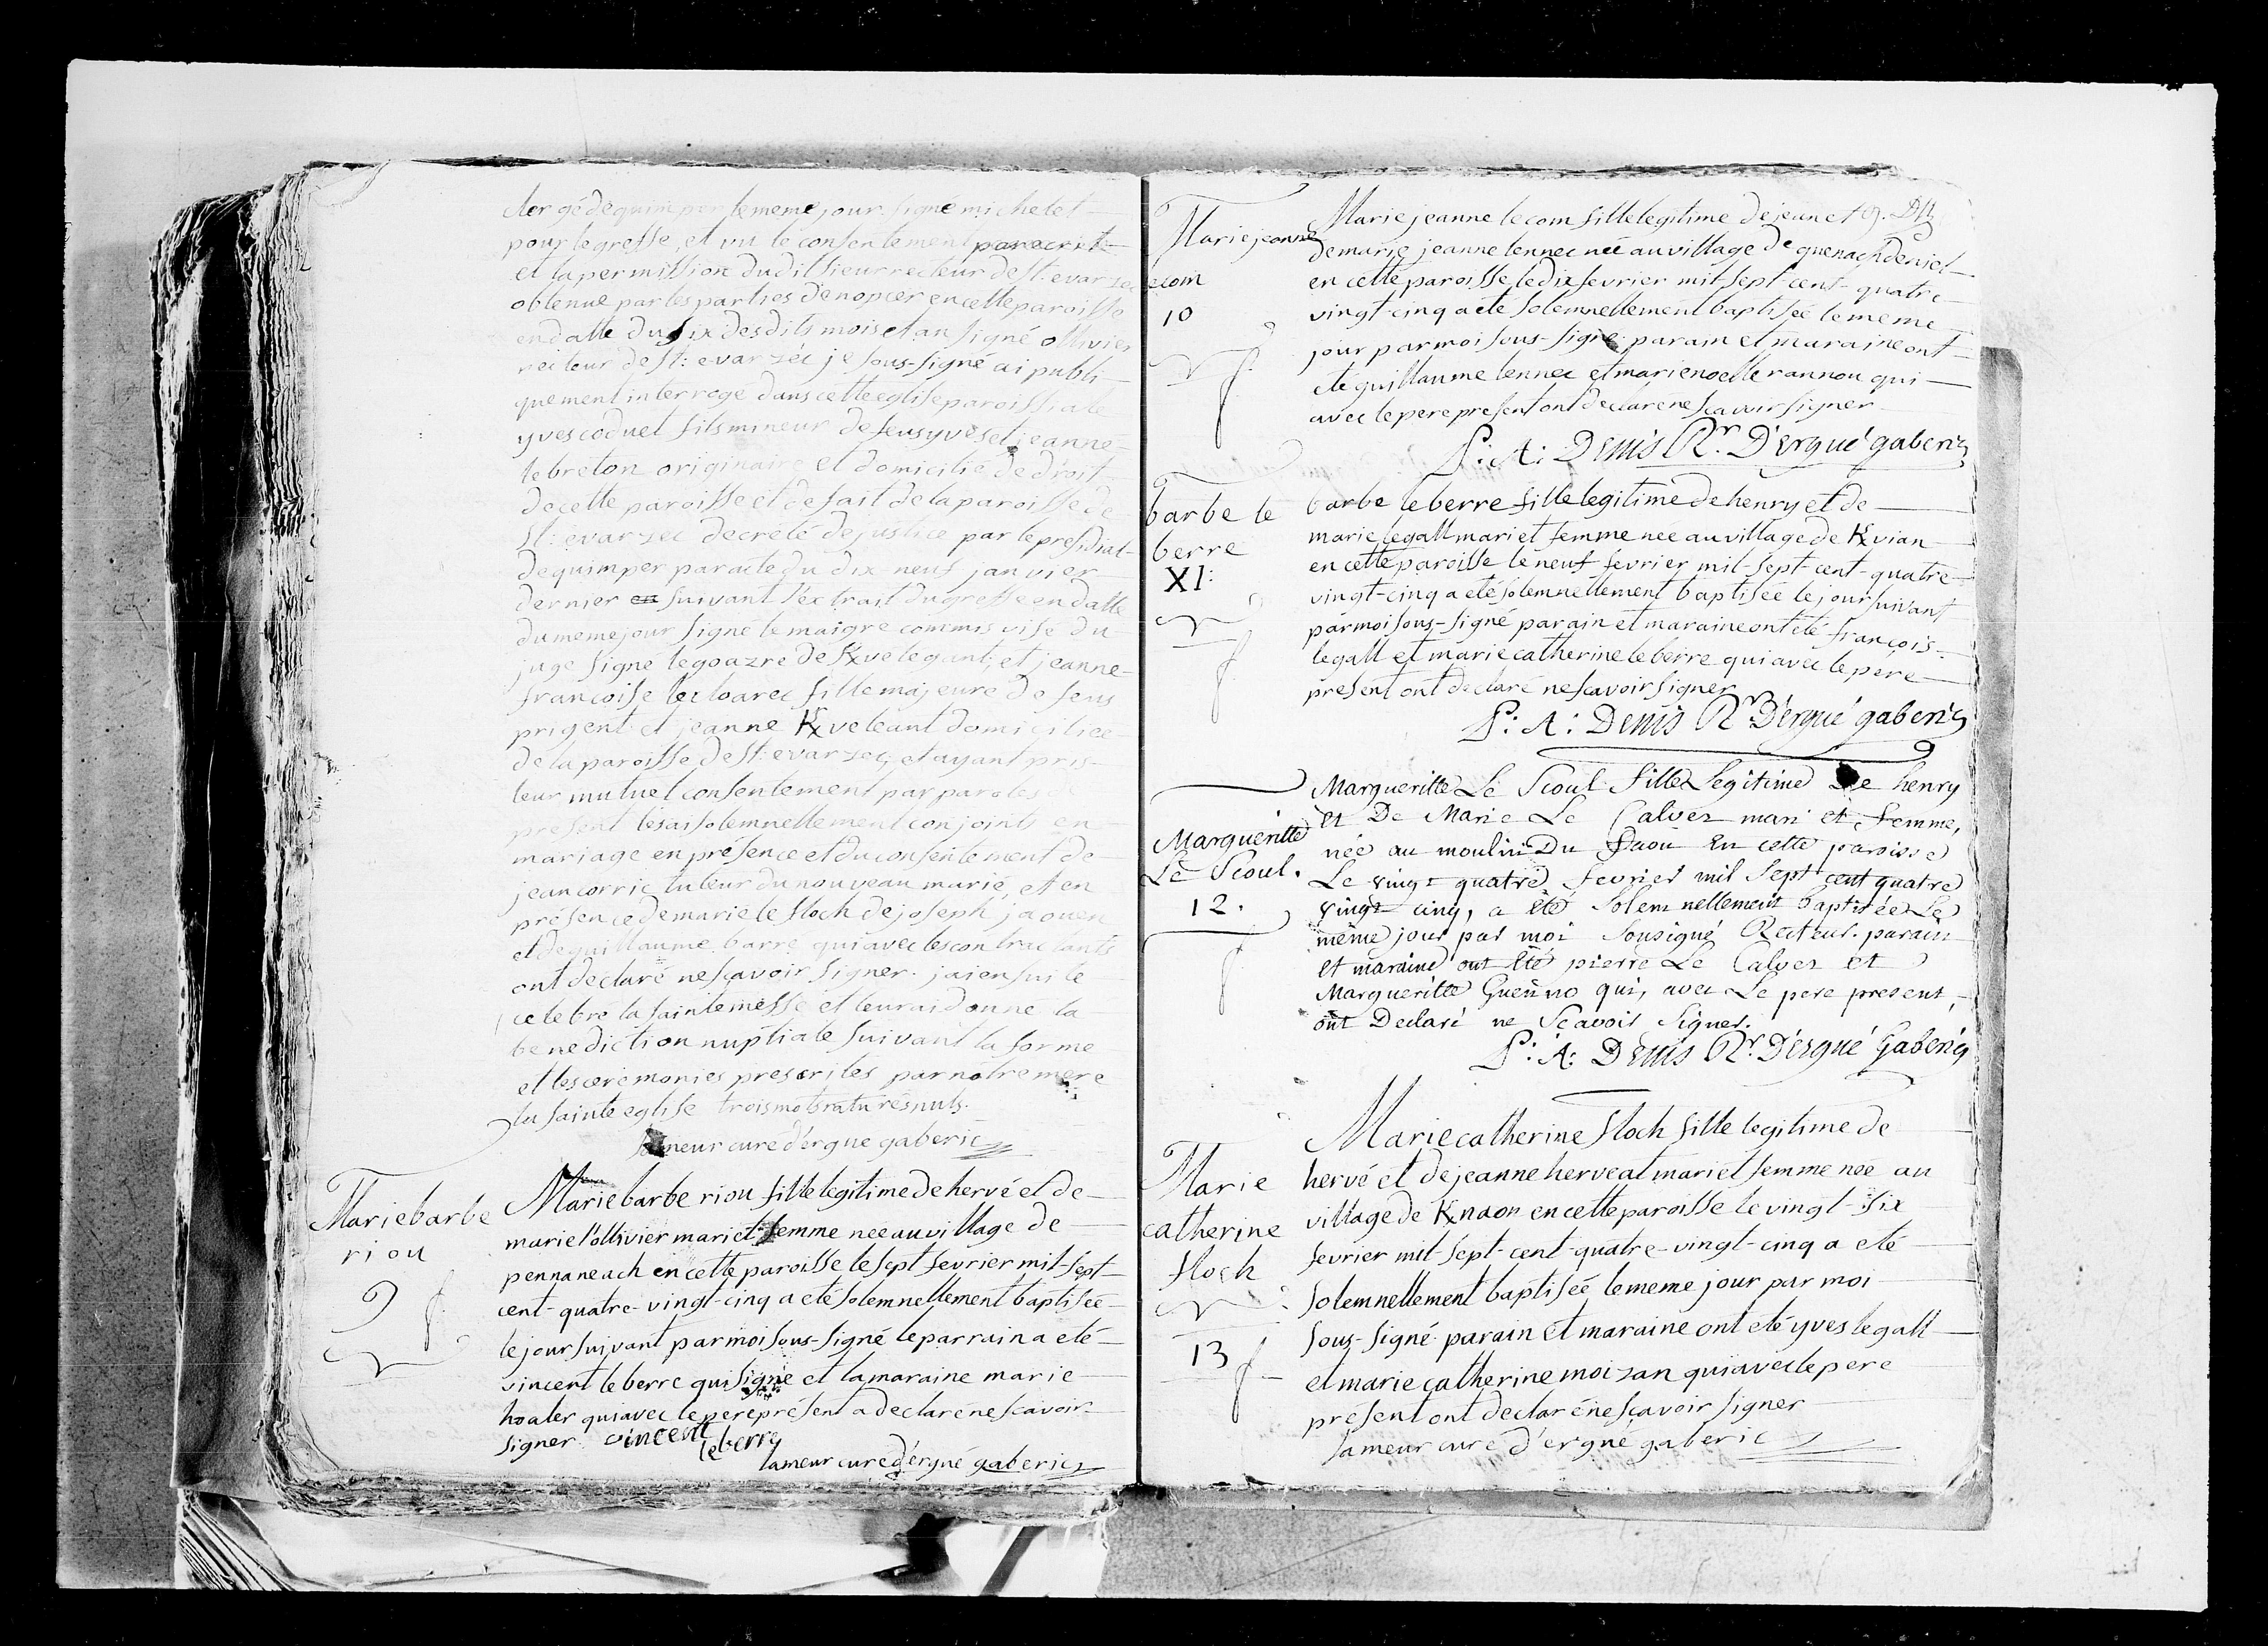 clergé de quimper le meme jour signé michelet
pour le greffe, et vu le consentement par ecrit
et la permission du dit sieur recteur de st: evarzec
obtenue par les parties d'enopcer en cette paroisse
en datte du six desdits mois et an signé ollivier
recteur de st: evarzéc je sous-signé ai publi-
quement interrogé dans cette eglise paroissiale
yves coduet fils mineur de feus yves et jeanne
le breton originaire et domicilié de droit
de cette paroisse et de fait de la paroisse de
st: evarzec decrété de justice par le presidial
de quimper par acte du dix neuf janvier
dernier suivant l'extrait du greffe en datte
du meme jour signé le maigre commis visé du
juge signé legoazre de Kvelegant, et jeanne
francoise le cloarec fille majeure de feus
prigent et jeanne Kveleant domiciliée
de la paroisse de st: evarzec, et ayant pris
leur mutuel consentement par paroles de
present les ai solemnellement conjoints en
mariage en présence et du consentement de
jean corric tuteur du nouveau marié, et en
présence de marie le floch de joseph jaouen
et de guillaume barré qui avec les contractants
ont declaré ne sçavoir signer. j'ai ensuite
celebré la sainte messe et leur ai donné la
benediction nuptiale suivant la forme
et les ceremonies prescrites par notre mere
la sainte eglise trois mots raturés nuls.
lameur curé d'ergue gaberic
Marie barbe
riou
9
Marie barbe riou fille legitime de hervé et de
marie l'ollivier mari et femme née au village de
pennaneach en cette paroisse le sept fevrier mil-sept-
cent-quatre-vingt-cinq a eté solemnellement baptisée
le jour suivant par moi sous-signé le parrain a eté
vincent le berre qui signe et la maraine marie
hoaler qui avec le pere présent a declaré ne scavoir
signer. vincent
le berre
lameur curé d'érgué gaberic
Marie jeanne
lecom
10
Marie jeanne le com fille legitime de jean et
de marie jeanne lennec née au village de quenachdeniel
en cette paroisse le dix fevrier mil-sept-cent-quatre
vingt-cinq a eté solemnellement baptisée le meme
jour par moi sous-signé parain et maraine ont
eté guillaume lennec et marie noelle rannou qui
avec le pere present ont declaré ne scavoir signer
P: A: Denis Rr. D'ergué gaberic
barbe le
berre
XI:
barbe le berre fille legitime de henry et de
marie le gall mari et femme née au village de Kvian
en cette paroisse le neuf fevrier mil-sept-cent-quatre
vingt-cinq a eté solemnellement baptisée le jour suivant
par moi sous-signé parain et maraine ont eté françois
le gall et marie catherine le berre qui avec le pere
present ont declaré ne scavoir signer
P: A: Denis Rr D'ergué gaberic
Margueritte
Le Scoul.
12.
Margueritte Le Scoul fille Legitime De henry
et De Marie Le Calvez mari et femme,
née au moulin Du Faou en cette paroisse
Le vingt quatre fevrier mil sept cent quatre
vingt cinq, a été solemnellement baptisée Le
même jour par moi sousigné Recteur. parain
et maraine ont été pierre Le Calvez et
Margueritte Guenno qui, avec Le pere present,
ont Declaré ne Scavoir signer.
P: A: Denis Rr. D'ergué Gaberic
Marie
catherine
floch
13
Marie catherine floch fille legitime de
hervé et de jeanne herveat mari et femme née au
village de Knaon en cette paroisse le vingt-six
fevrier mil-sept-cent-quatre-vingt-cinq a eté
solemnellement baptisée le meme jour par moi
sous-signé parain et maraine ont eté yves le gall
et marie catherine moizan qui avec le pere
présent ont declaré ne sçavoir signer
lameur curé d'ergué gaberic